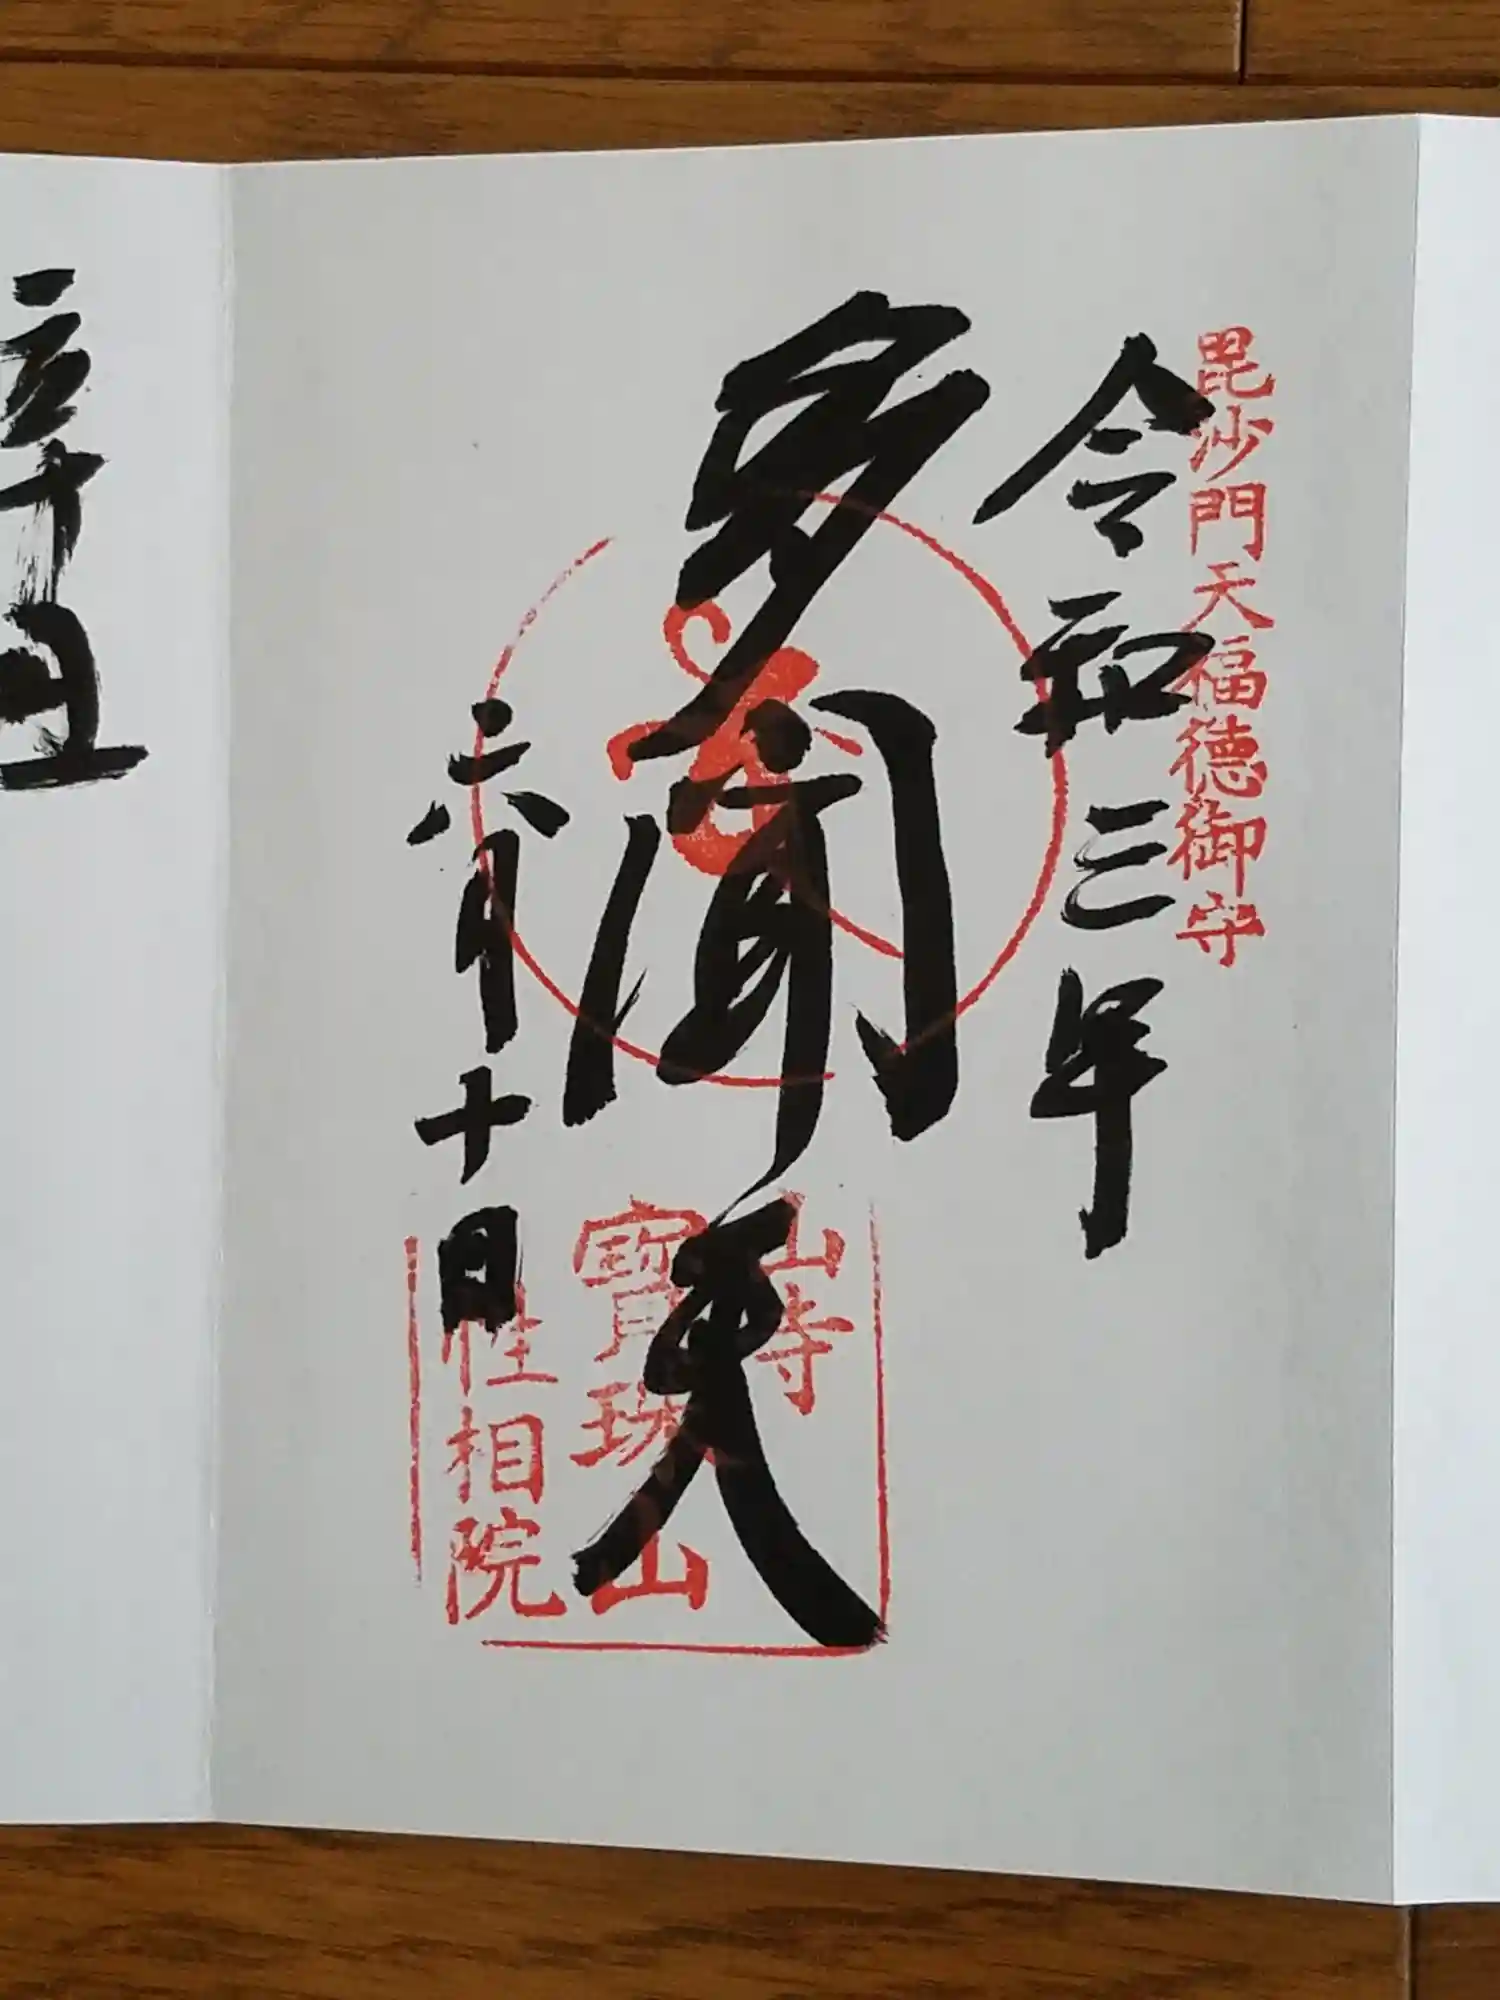 毘沙門天福徳御守
令和三年
多聞天
二六月十日
山寺
寳珠山
性相院
辛丑